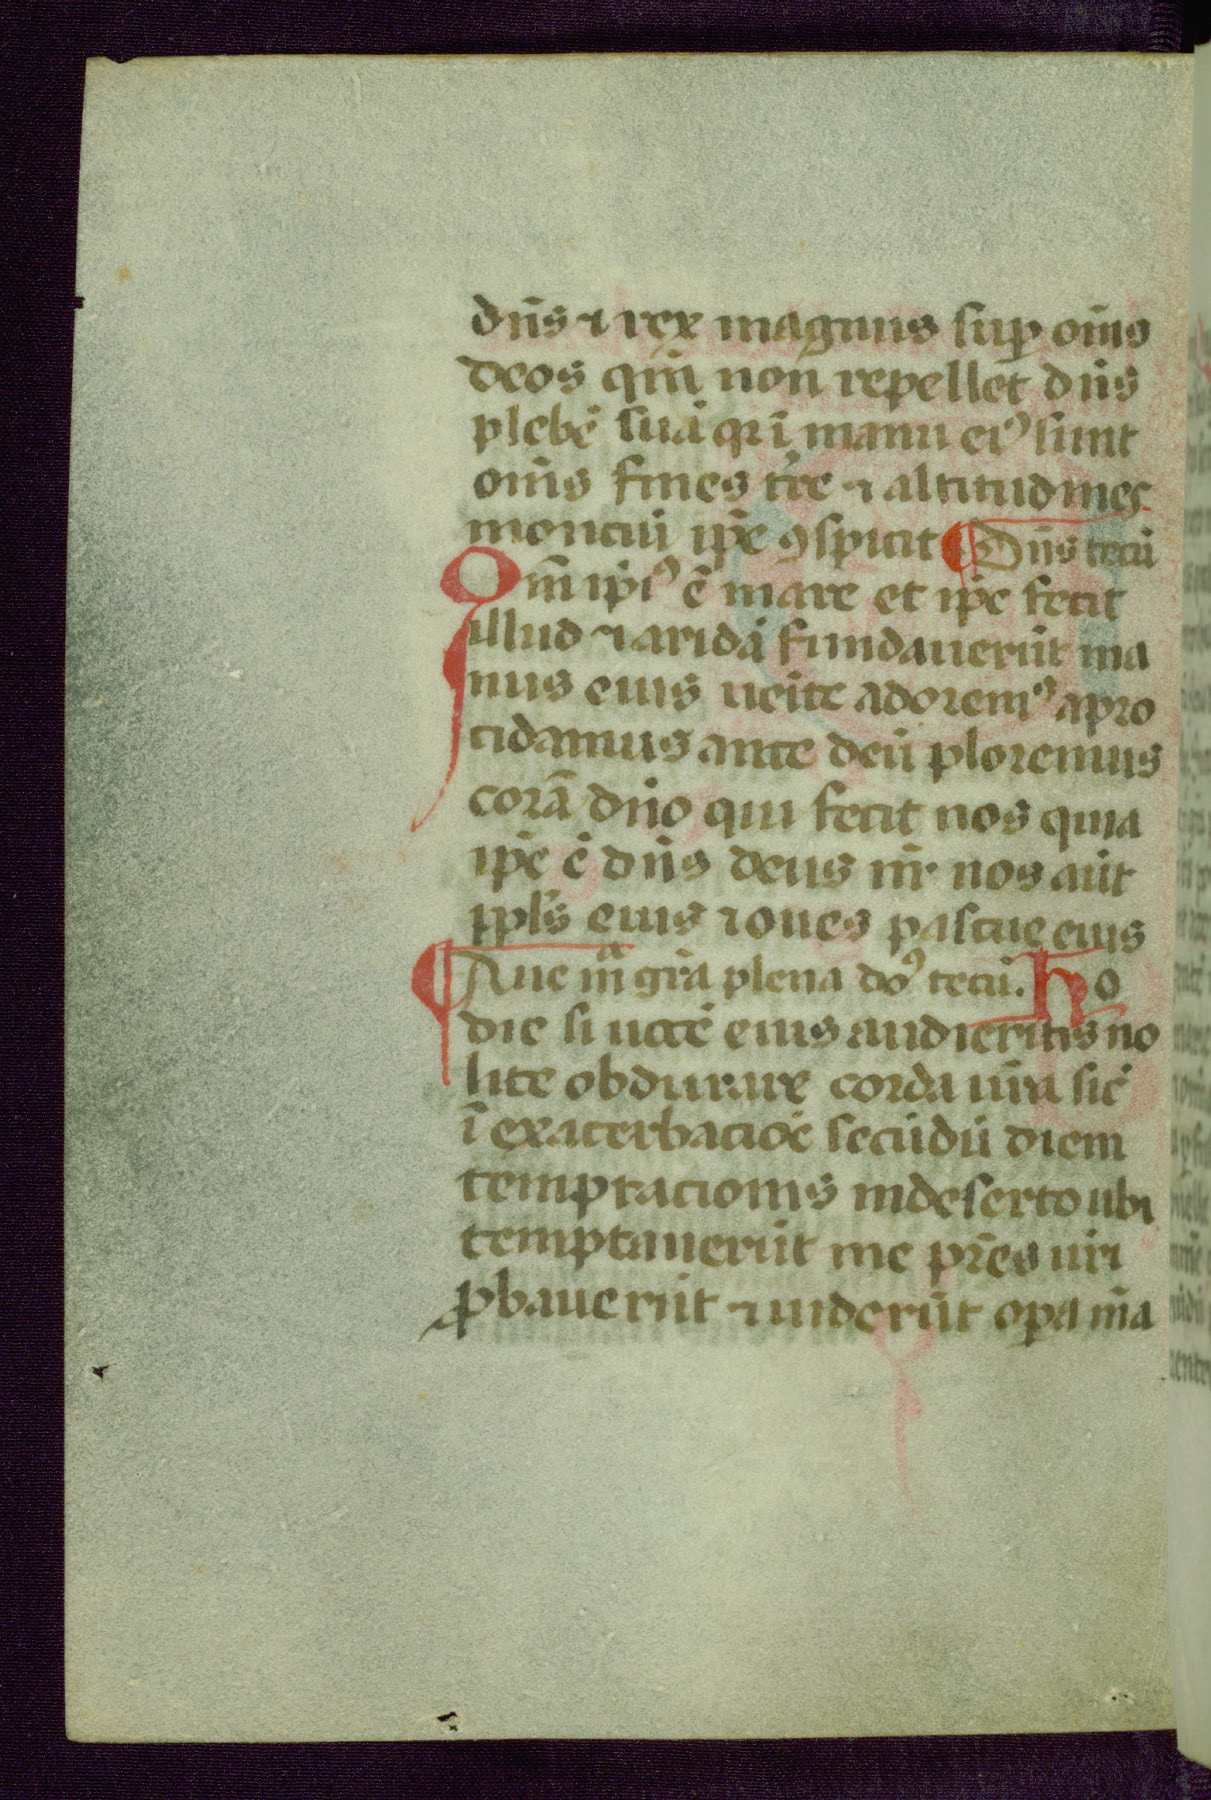 dn̄s ⁊ rex magnus suꝑ om̄s
deos qm̄ non repellet dn̄s
plebē suā qr ī manu eiꝰ sunt
om̄s fines tr̄e ⁊ altitudines
montiū ip̄e ꝯspicit ¶ Dn̄s tecū
Qm̄ ip̄iꝰ ē mare et ip̄e fecit
illud ⁊ aridā fundauerūt ma
nus eius ueīte adoremꝰ ⁊ pro
cidamus ante deū ploremus
corā dn̄o qui fecit nos quia
ip̄e ē dn̄s deus nr̄ nos aūt
ppl̄s eius ⁊ oues pascue eius
¶ Aue m̄ gr̄a plena doꝰ tecū. Ho
die si uocē eius audieritis no
lite obdurare corda ur̄a sic̄
ī exacerbacioē secūdū diem
temptacionis in deserto ubi
temptauerūt me pr̄es uri
ꝓbauerūt ⁊ uiderūt oꝑa m̄a